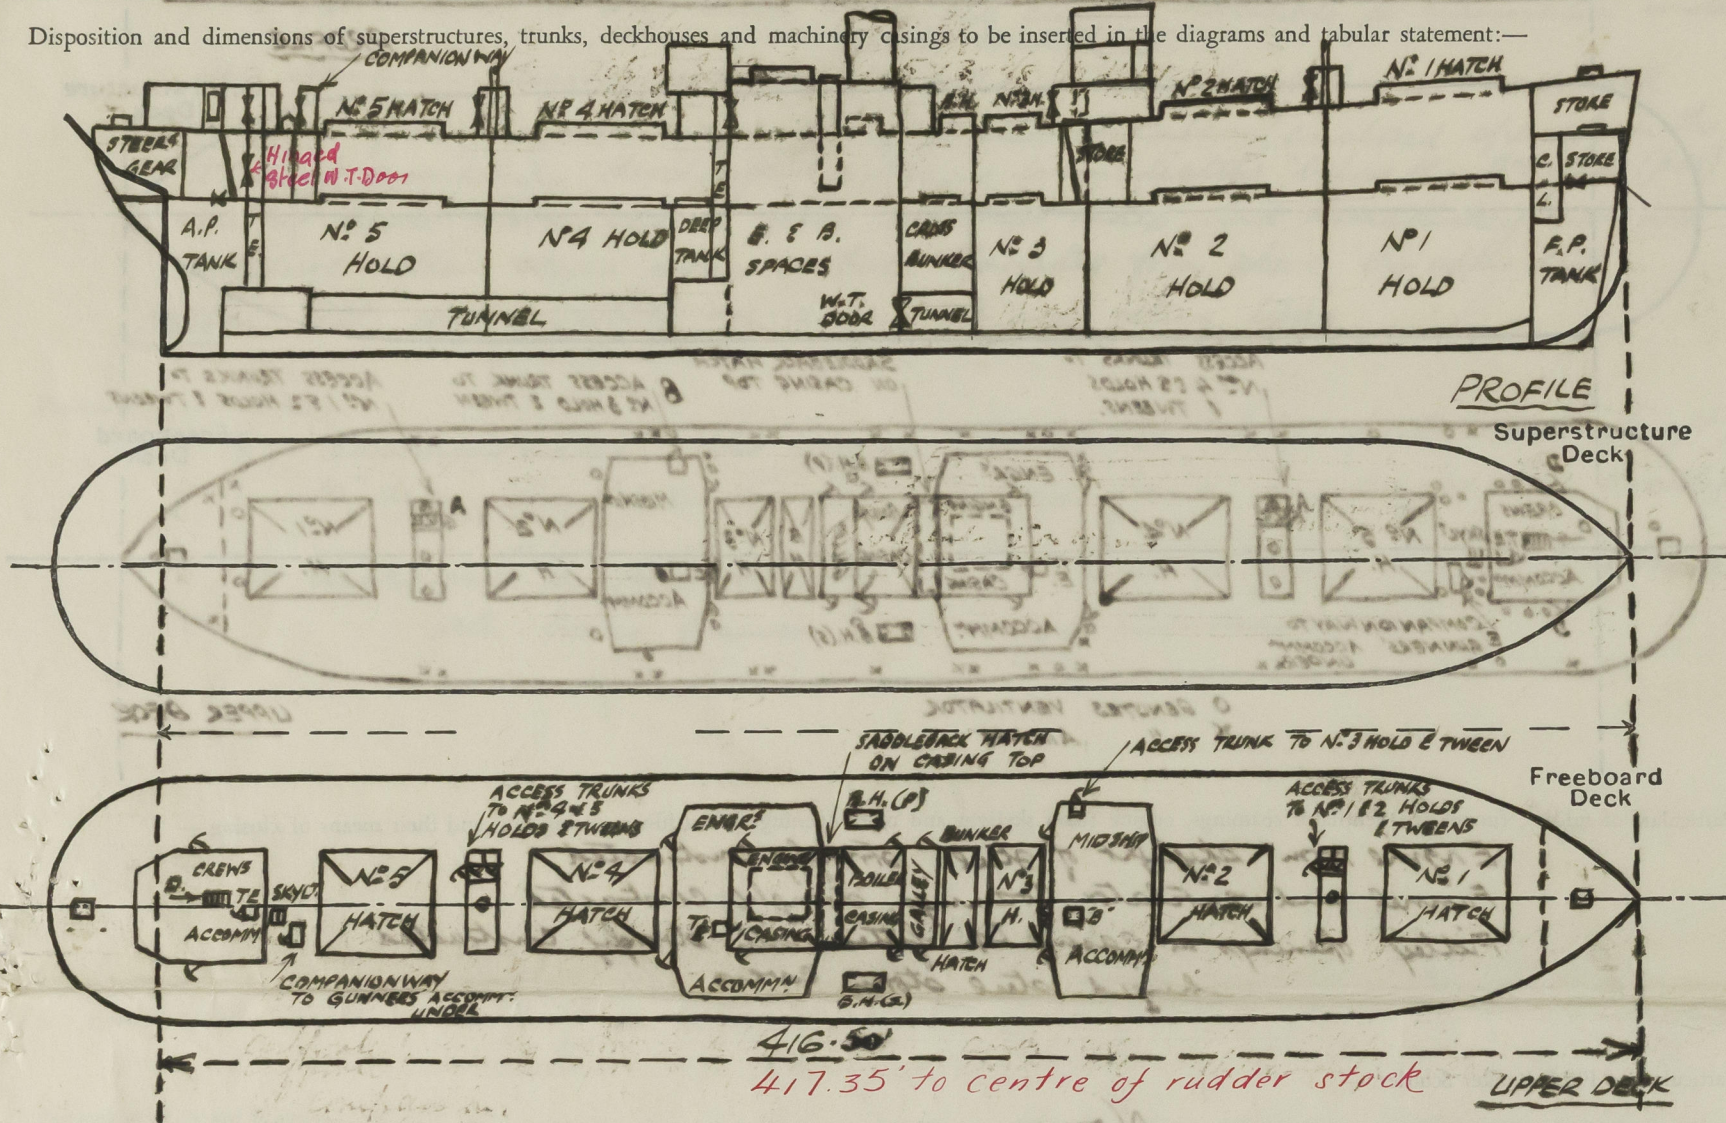 Disposition and dimensions of superstructures, trunks, deckhouses and machinery casings to be inserted in the diagrams and tabular statement:—
COMPANIONWAY
Nº 5 HATCH
Nº 4 HATCH
B.H.
Nº 3 H.
Nº 2 HATCH
Nº 1 HATCH
STORE
STEERG
GEAR
Hinged
Steel W.T. Door
STORE
C.
L.
STORE
T
E
A.P.
TANK
T
E.
Nº 5
HOLD
Nº 4 HOLD
DEEP
TANK
E. & B.
SPACES
CROSS
BUNKER
Nº 3
HOLD
Nº 2
HOLD
Nº 1
HOLD
F.P.
TANK
TUNNEL
W.T.
DOOR
TUNNEL
PROFILE
Superstructure
Deck
SADDLEBACK HATCH
ON CASING TOP
ACCESS TRUNK TO Nº 3 HOLD & TWEEN
Freeboard
Deck
ACCESS TRUNKS
TO Nº 4 & 5
HOLDS & TWEENS
B.H. (P)
ACCESS TRUNKS
TO Nº 1 & 2 HOLDS
& TWEENS
CREWS
ACCOMM
TE
SKYLT.
Nº 5
HATCH
Nº 4
HATCH
ENGRS
ENGINE
CASING
TE
ACCOMMN
BOILER
CASING
GALLEY
BUNKER
HATCH
Nº 3
H.
MIDSHIP
"B"
ACCOMMN
Nº 2
HATCH
Nº 1
HATCH
COMPANIONWAY
TO GUNNERS ACCOMMT.
UNDER
B.H. (S)
416.50'
417.35' to centre of rudder stock
UPPER DECK